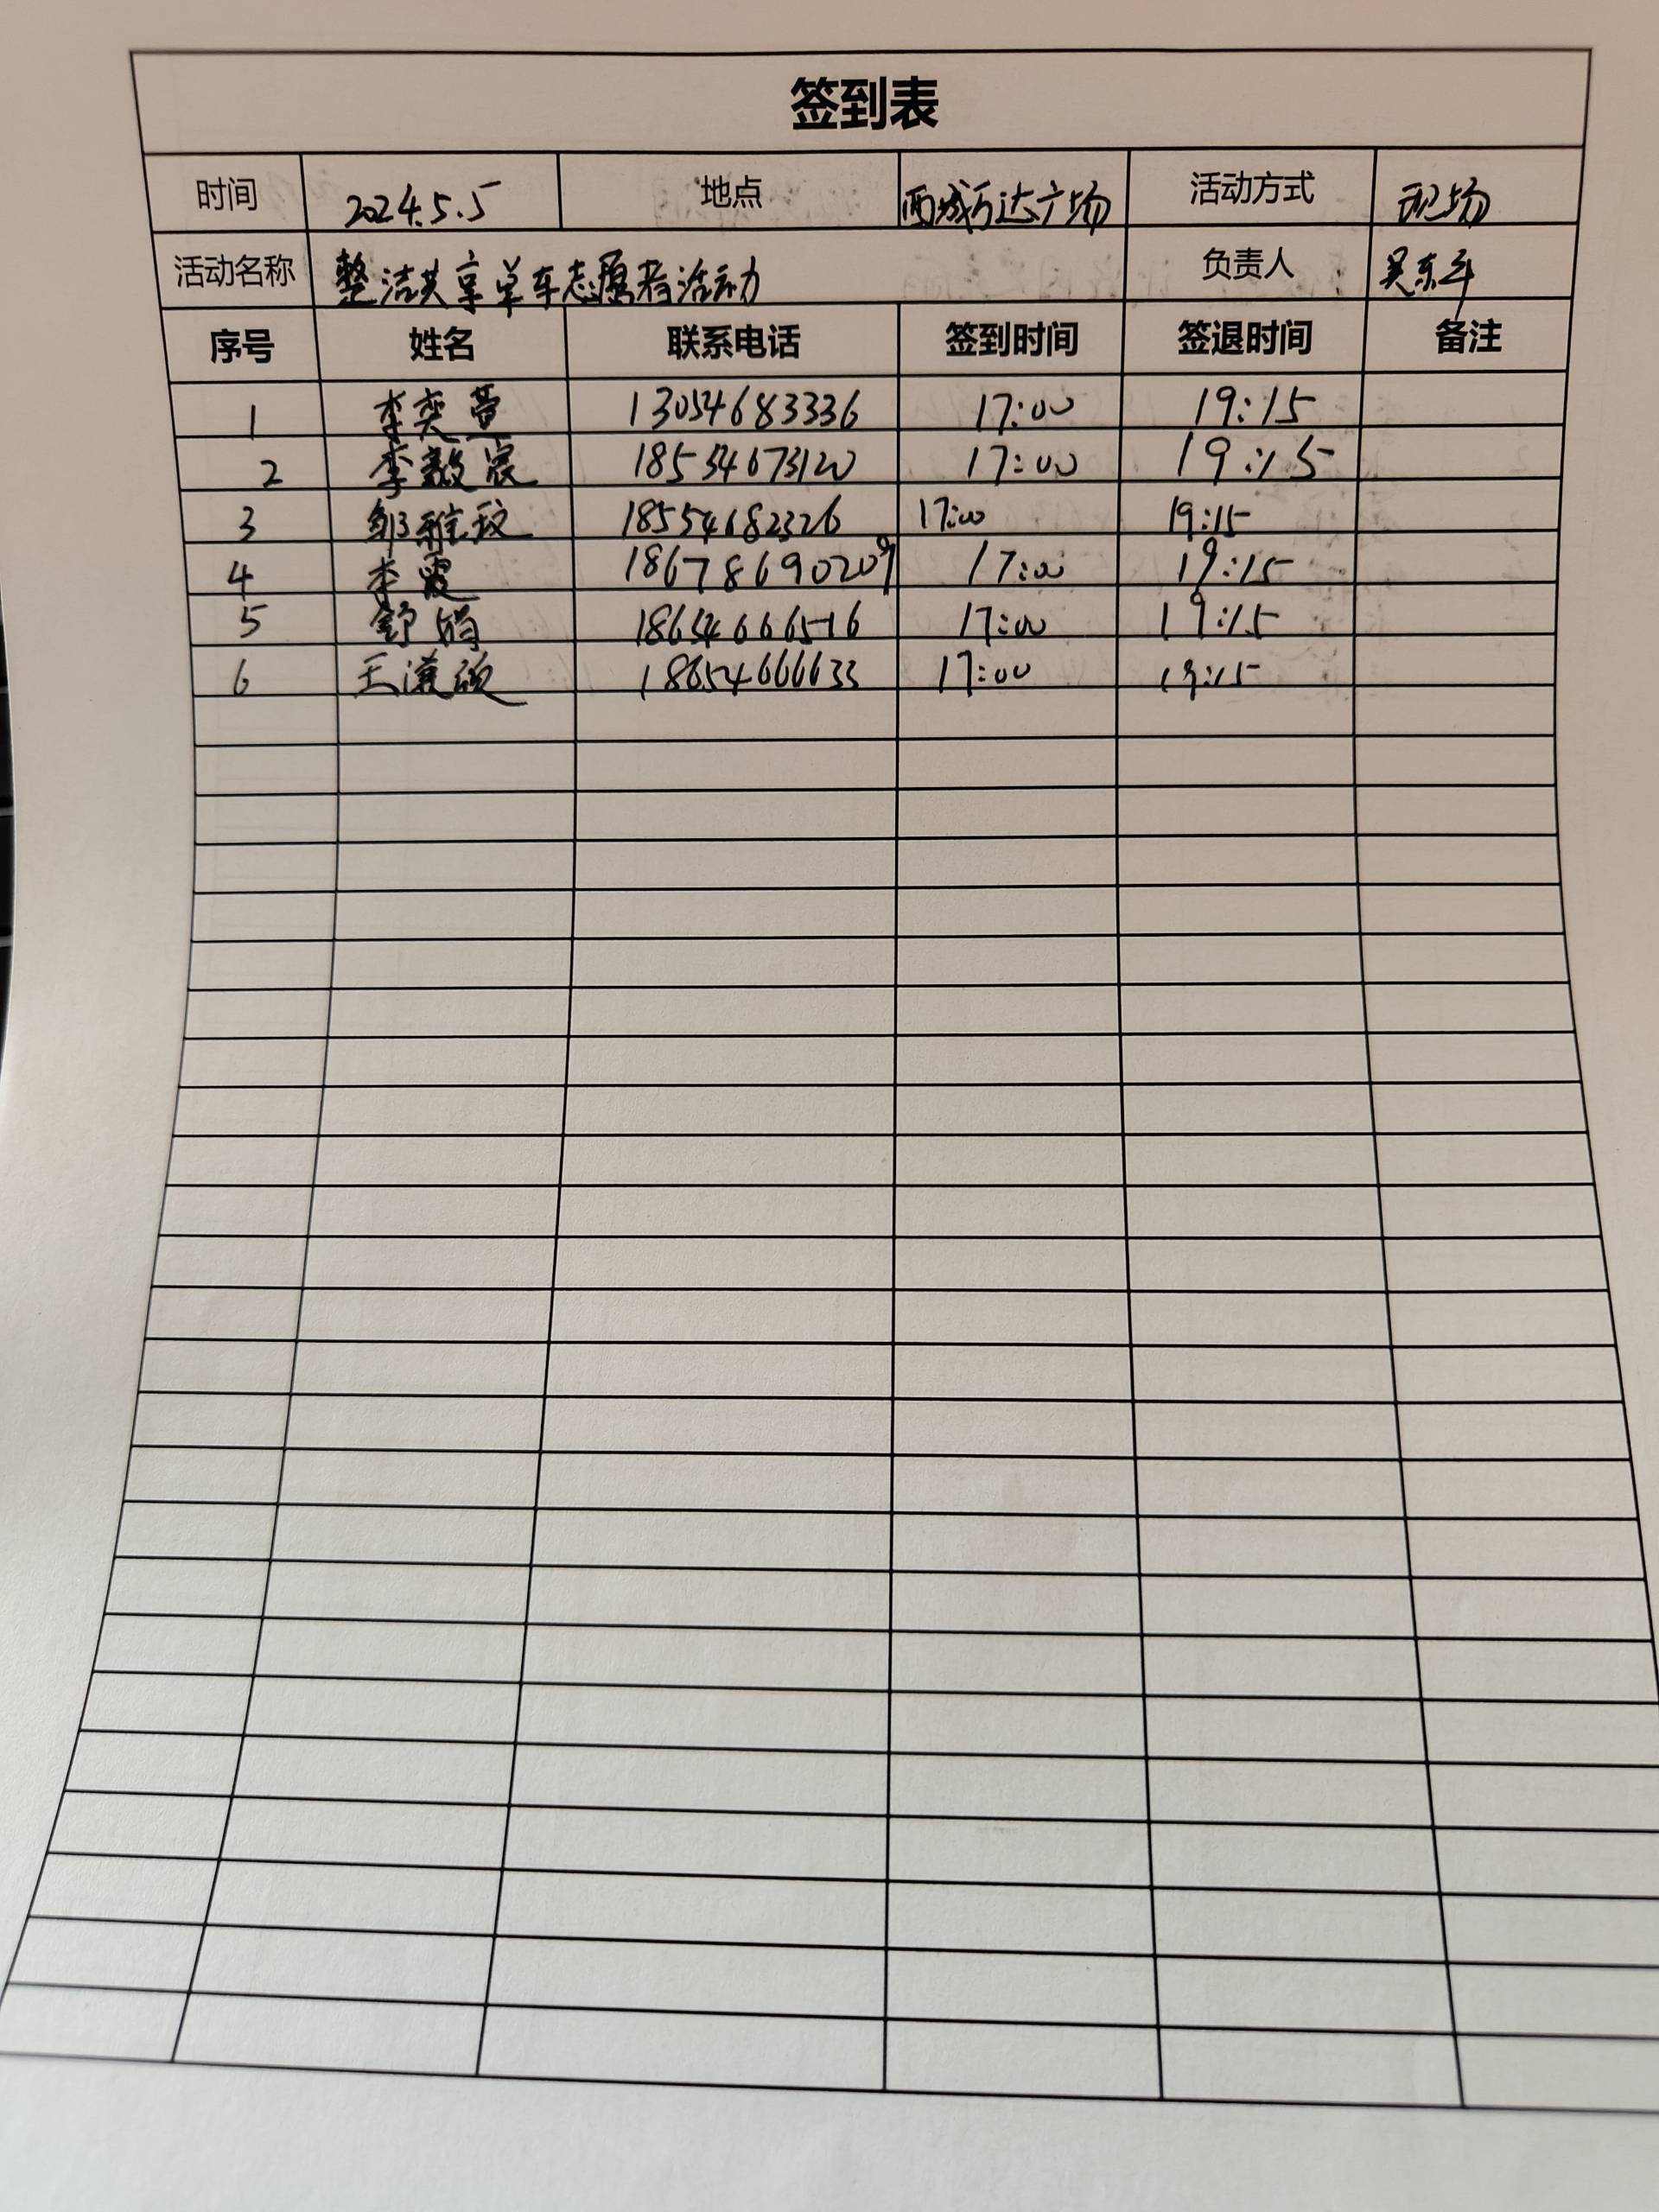 签到表
时间 2024.5.5 地点 西城万达广场 活动方式 现场
活动名称 整洁共享单车志愿者活动 负责人 吴东斗
序号 姓名 联系电话 签到时间 签退时间 备注
1 李奕萱 13054683336 17:00 19:15
2 李毅宸 18554673120 17:00 19:15
3 邹雅玟 18554682326 17:00 19:15
4 李霞 18678690209 17:00 19:15
5 舒娟 18654666516 17:00 19:15
6 王漢硕 18654666633 17:00 19:15